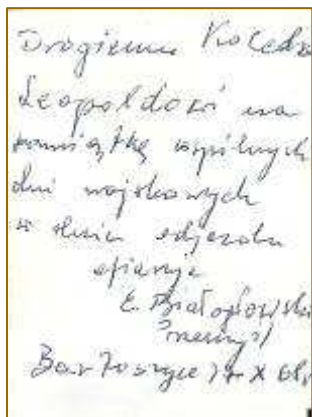 Drogiemu Koledze
Leopoldowi na
pamiątkę wspólnych
dni wojskowych
w dniu odjazdu
ofiaruje
E. Białogłowski
Bartoszyce X 68r